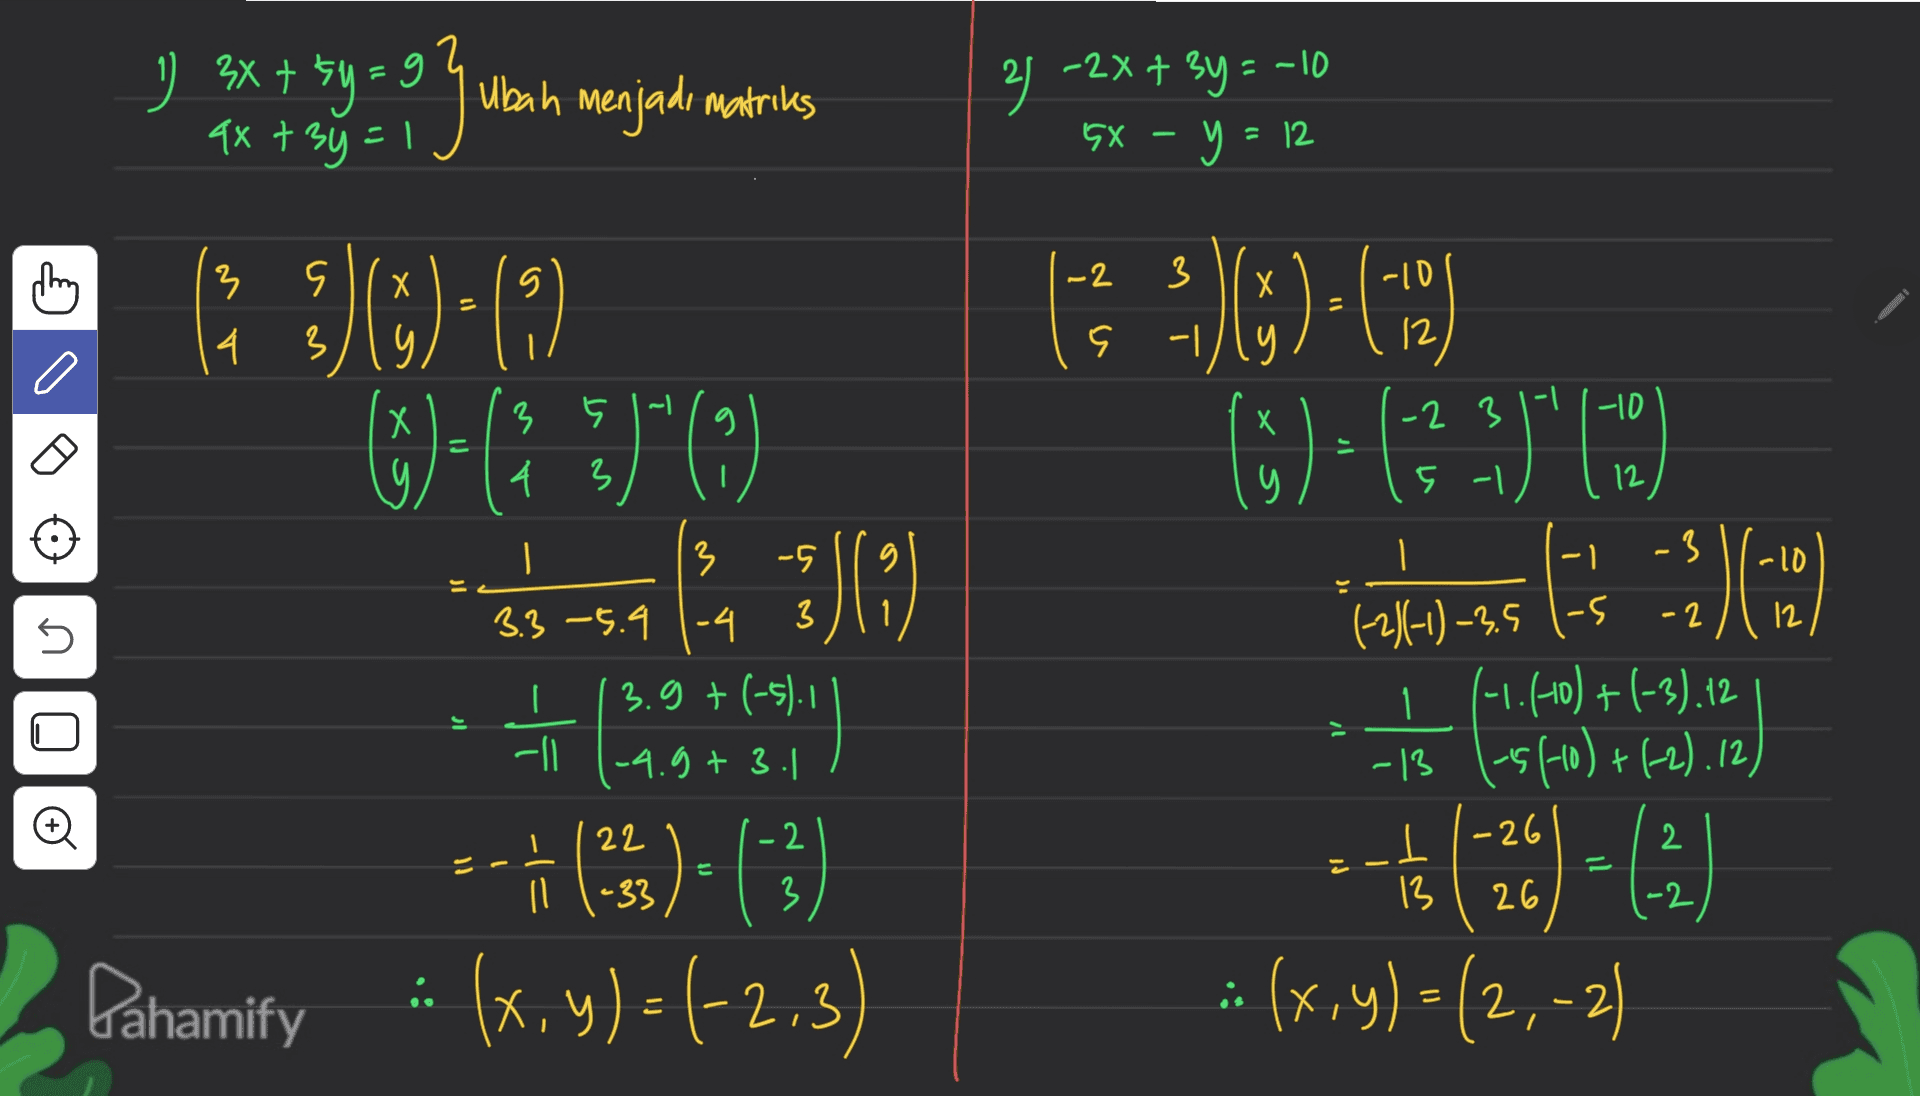 1) 3x + 5y = 9
4x + 3y = 1
} Ubah menjadi matriks
(3 5
4 3)(x
y) = (9
1)
(x
y) = (3 5
4 3)⁻¹ (9
1)
= 1/(3.3 - 5.4) (3 -5
-4 3)(9
1)
= 1/-11 (3.9 + (-5).1
-4.9 + 3.1)
= -1/11 (22
-33) = (-2
3)
∴ (x,y) = (-2,3)
2) -2x + 3y = -10
5x - y = 12
(-2 3
5 -1)(x
y) = (-10
12)
(x
y) = (-2 3
5 -1)⁻¹ (-10
12)
= 1/((-2)(-1) - 3.5) (-1 -3
-5 -2)(-10
12)
= 1/-13 (-1.(-10) + (-3).12
-5(-10) + (-2).12)
= -1/13 (-26
26) = (2
-2)
∴ (x,y) = (2,-2)
Pahamify